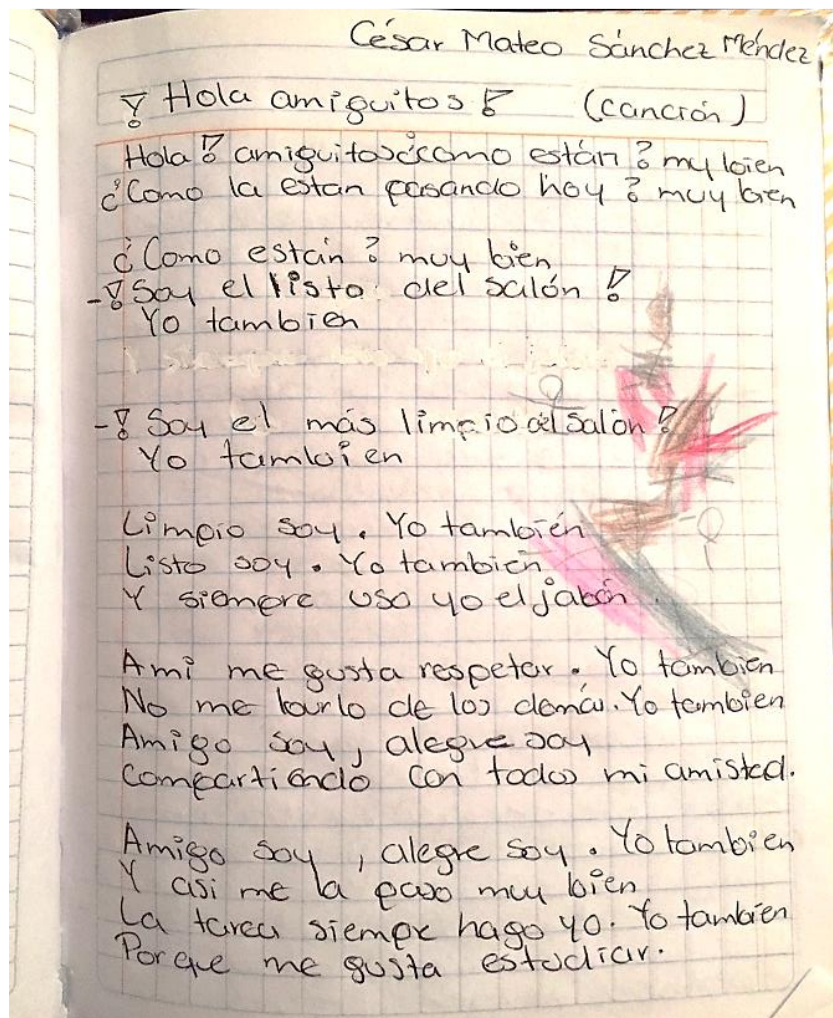 César Mateo Sánchez Méndez
¡Hola amiguitos! (canción)
Hola! amiguitos ¿como están? my bien
¿Como la estan pasando hoy? muy bien
¿Como están? muy bien
-¡Soy el listo del salón!
Yo tambien
-¡Soy el más limpio del salón!
Yo tambien
Limpio soy. Yo también
Listo soy. Yo tambien
Y siempre uso yo el jabón.
Ami me gusta respetar. Yo tambien
No me burlo de los demás. Yo tambien
Amigo soy, alegre soy
Compartiendo con todos mi amistad.
Amigo soy, alegre soy. Yo tambien
Y asi me la paso muy bien
La tarea siempre hago yo. Yo tambien
Porque me gusta estudiar.